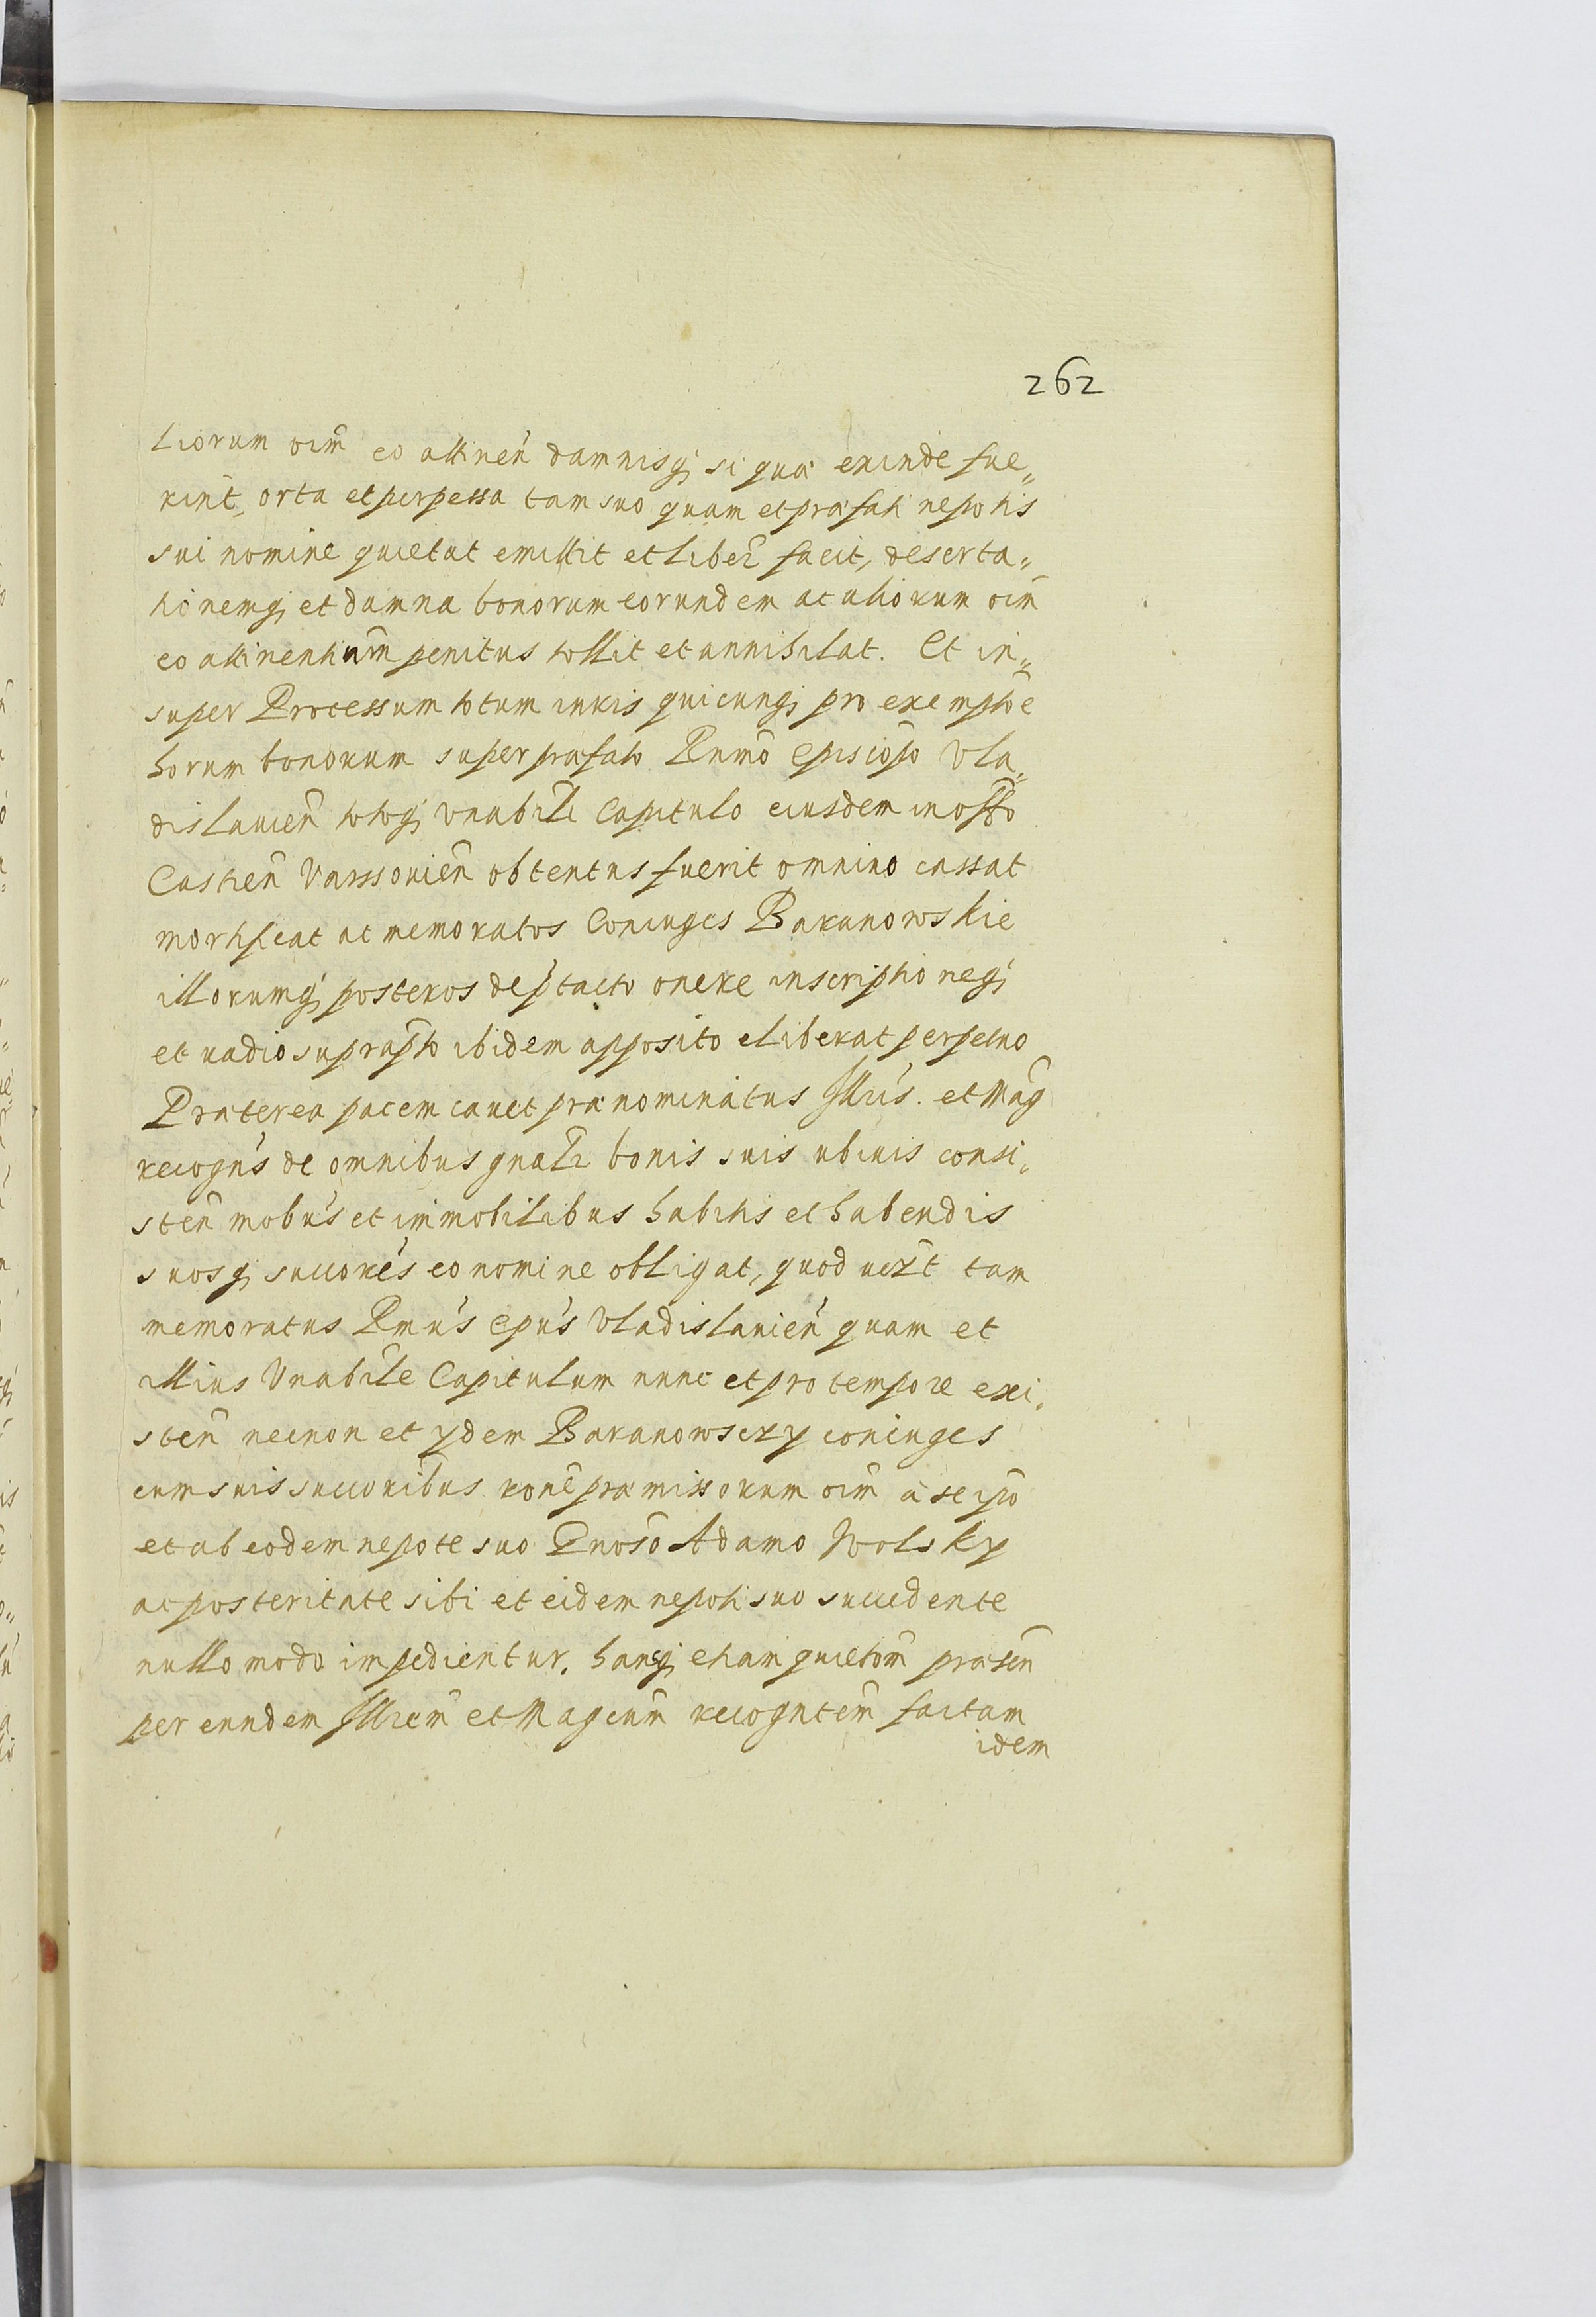 262
liorum oim̃ eo attineñ damnisq; si quæ exinde fue„
rint, orta et perpessa tam suo quam et præfati nepotis
sui nomine quietat emittit et liber̃ facit, deserta„
tionemq; et damna bonorum eorundem ac aliorum oim̃
eo attinentium penitus tollit et annihilat. Et in„
super Processum totum iuris quicunq; pro exemptõe
horum bonorum super præfato Rñmo Episcopo Vla„
dislauieñ totoq; Vnabili Capitulo eiusdem in offo
Castreñ Varssouieñ obtentus fuerit omnino cassat
mortificat ac memoratos Coniuges Baranowskie
illorumq; posteros de p̃tacto onere inscriptioneq;
et vadio suprap̃to ibidem apposito eliberat perpetuo
Præterea pacem cauet prænominatus Illris. et Mag̃
recogñs de omnibus gñalr̃ bonis suis ubiuis consi„
steñ mobũs et immobilibus habitis et habendis
suosq; succorẽs eo nomine obligat, quod nec̃t tam
memoratus Rmũs Epũs Vladislauieñ quam et
illius Vnabile Capitulum nunc et pro tempore exi„
steñ necnon et ydem Baranowsczy coniuges
cum suis succoribus roñe præmissorum oim̃ a se ipõ
et ab eodem nepote suo Gñoso Adamo Wolsky
ac posteritate sibi et eidem nepoti suo succedente
nullo modo impedientur. hancq; etiam quietoñm præseñ
per eundem Illrem̃ et Magcum̃ recognteñm factam
idem